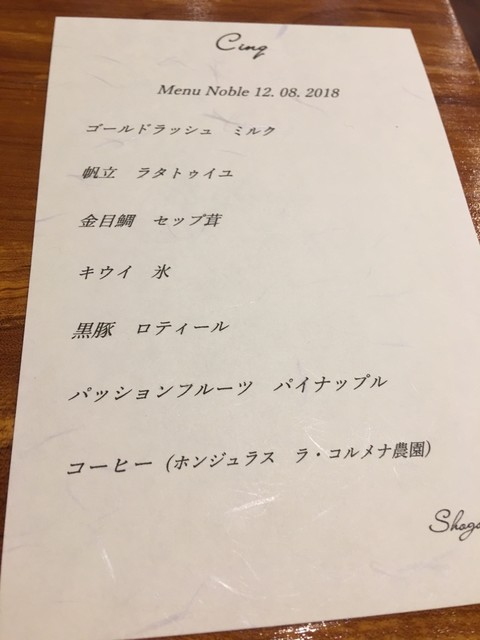 Cinq
Menu Noble 12. 08. 2018
ゴールドラッシュ　ミルク
帆立　ラタトゥイユ
金目鯛　セップ茸
キウイ　氷
黒豚　ロティール
パッションフルーツ　パイナップル
コーヒー（ホンジュラス　ラ・コルメナ農園）